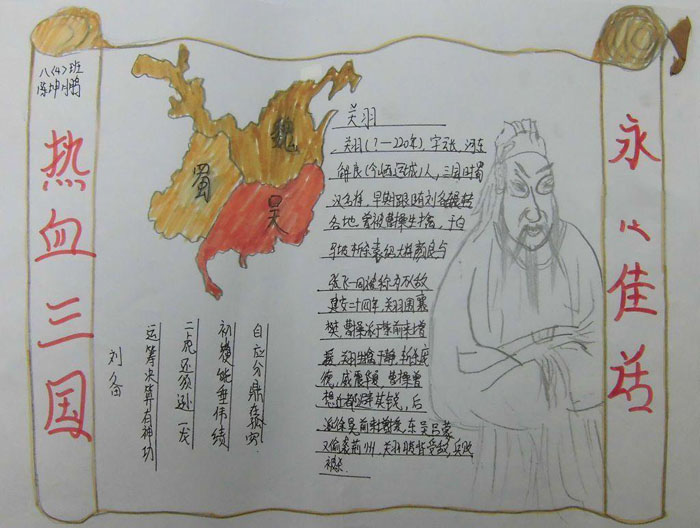 八(4)班
热血三国
魏
蜀
吴
关羽
关羽(?—220年),字云长,河东
解良(今山西运城)人,三国时蜀
汉名将,早期跟随刘备辗转
各地,曾被曹操生擒,于白
马坡斩杀袁绍大将颜良与
张飞一同被称为万人敌
建安二十四年,关羽围襄
樊,曹操派于禁前来增
援,关羽生擒于禁,斩杀庞
德,威震华夏,曹操曾
想迁都避其锐,后
派徐晃前来增援,东吴吕蒙
又偷袭荆州,关羽腹背受敌,兵败
被杀.
运筹决算有神功
二虎还须逊一龙
初 能垂伟绩
自应分鼎在孤穷
刘备
永 佳话